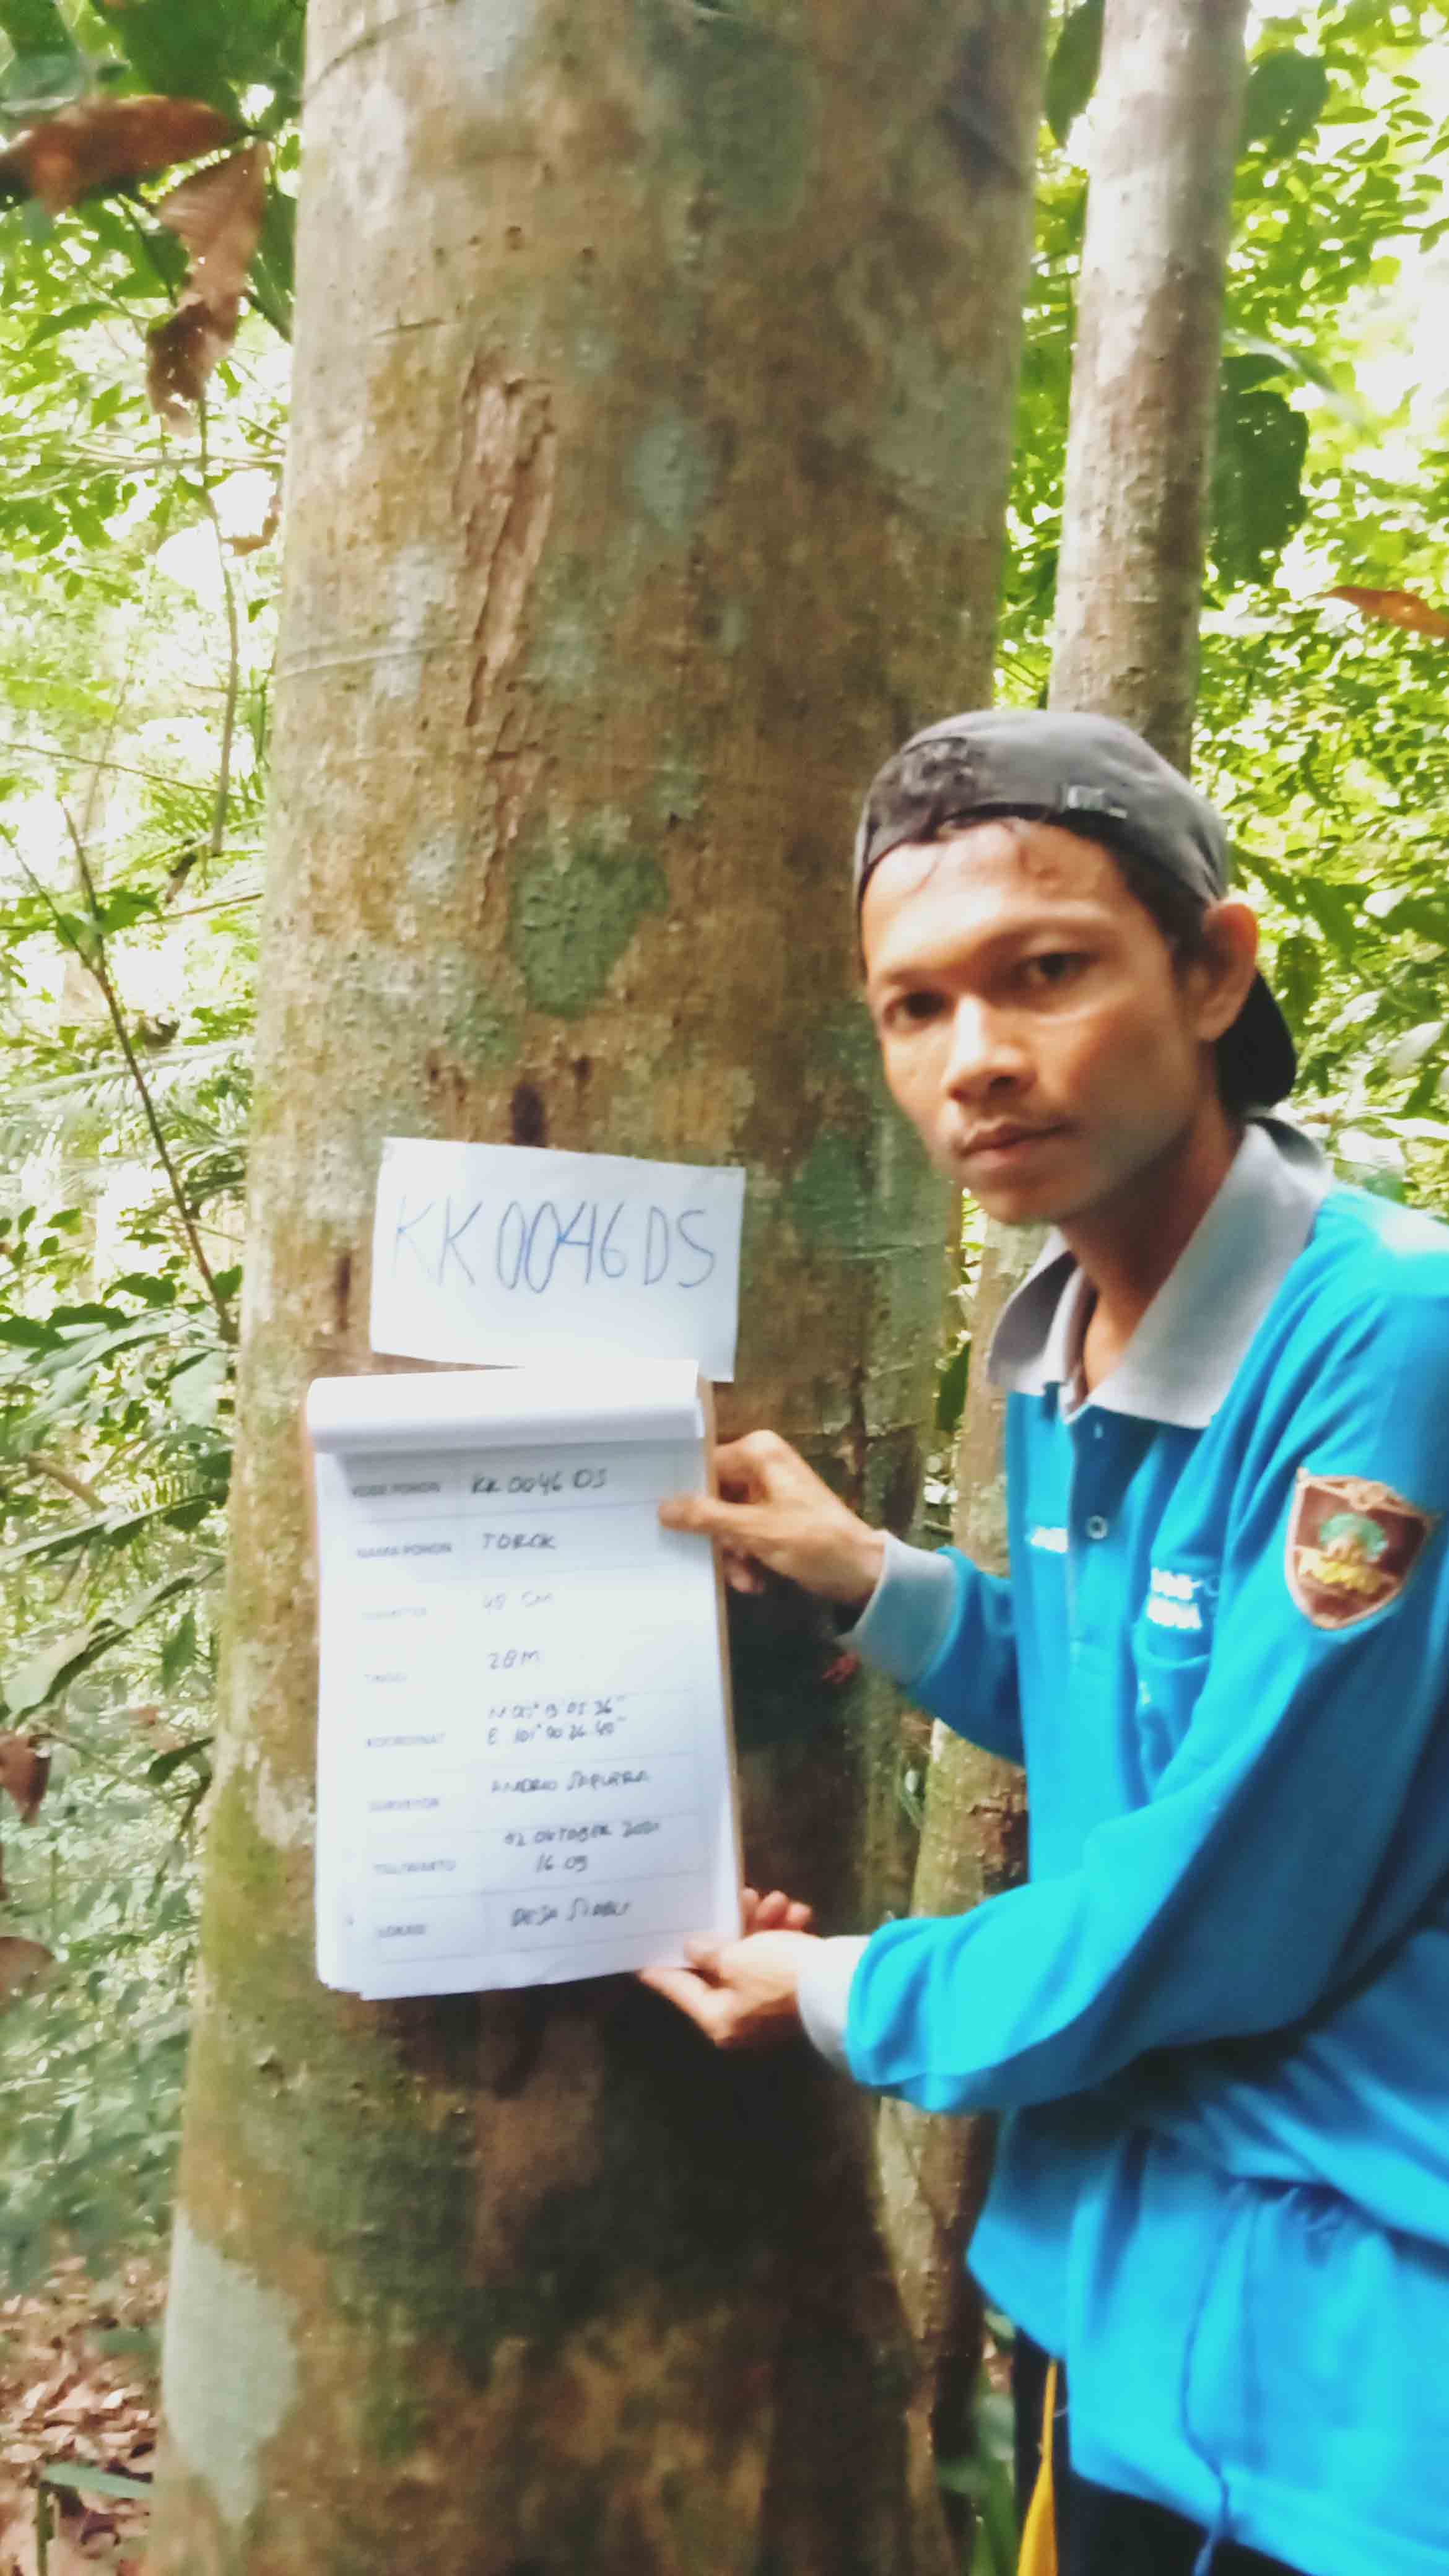 KK0046DS
KODE POHON KK 0046 DS
NAMA POHON TOROK
DIAMETER 48 CM
TINGGI 28 M
KOORDINAT
E 101° 00 26.40"
SURVEYOR ANDRIO SAPUTRA
TGL/WAKTU 02 OKTOBER 2020
16.09
LOKASI DESA SIABU